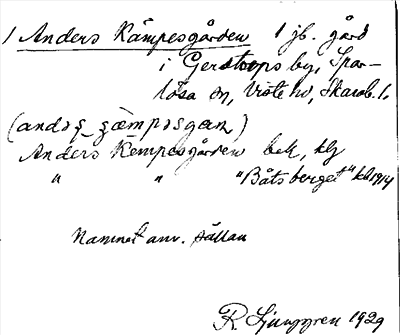 1 Anders Kämpesgården 1 jb. gård
i Gerstorps by, Spar-
lösa sn, Viste hd, Skarab. l.
(andəs çæmpəsgan)
Anders Kempesgården bek, klg
" " "Båtsberget" klg 1914
Namnet anv. sällan
R. Ljunggren 1929